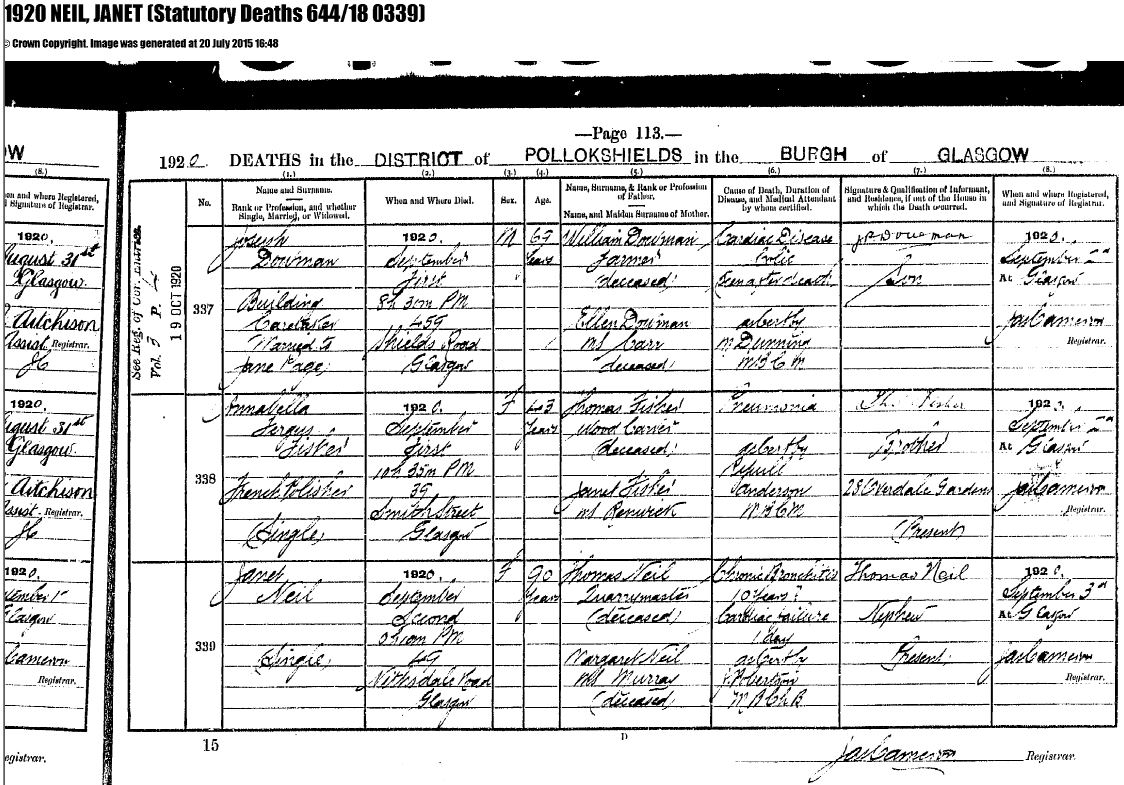 1920 NEIL, JANET (Statutory Deaths 644/18 0339)
© Crown Copyright. Image was generated at 20 July 2015 16:48
—Page 113.—
1920 DEATHS in the DISTRICT of POLLOKSHIELDS in the BURGH of GLASGOW
OW
(8.)
en and where Registered,
d Signature of Registrar.
1920.
August 31st
Glasgow.
Aitchison
Assist. Registrar.
1920.
August 31st
Glasgow.
Aitchison
Assist. Registrar.
1920.
Glasgow.
Cameron
Registrar.
egistrar.
See Reg. of Cor. Entries
Vol. 3 P.
19 OCT 1920
No.
(1.)
Name and Surname.
Rank or Profession, and whether
Single, Married, or Widowed.
(2.)
When and Where Died.
(3.)
Sex.
(4.)
Age.
(5.)
Name, Surname, & Rank or Profession
of Father.
Name, and Maiden Surname of Mother.
(6.)
Cause of Death, Duration of
Disease, and Medical Attendant
by whom certified.
(7.)
Signature & Qualification of Informant,
and Residence, if out of the House in
which the Death occurred.
(8.)
When and where Registered,
and Signature of Registrar.
337
Joseph
Dowman
Building
Caretaker
Married to
Jane Page
1920.
September
First
8h 30m PM
459
Shields Road
Glasgow
M
69
Years
William Dowman
Farmer
(deceased)
Ellen Dowman
MS Carr
(deceased)
Cardiac Disease
Colic
(Seen after death)
as cert by
M.B C M
Dowman
Son
1920.
September 2nd
At Glasgow
Jas Cameron
Registrar.
338
Annabella
Fergus
Fisher
French Polisher
(Single)
1920.
September
First
10h 35m PM
39
Smith Street
Glasgow
F
43
Years
Thomas Fisher
Wood Carver
(deceased)
Janet Fisher
MS Renwick
Pneumonia
as cert by
Sanderson
M.B C M
Fisher
Brother
28 Overdale Gardens
(Present)
1920.
September 2nd
At Glasgow
Jas Cameron
Registrar.
339
Janet
Neil
(Single)
1920.
September
Second
3h 10m PM
49
Nithsdale Road
Glasgow
F
90
Years
Thomas Neil
Quarrymaster
(deceased)
Margaret Neil
MS Murray
(deceased)
Chronic Bronchitis
10 Years
Cardiac Failure
1 day
as cert by
J. Robertson
M B Ch B
Thomas Neil
Nephew
Present
1920.
September 3rd
At Glasgow
Jas Cameron
Registrar.
15
D
Jas Cameron Registrar.